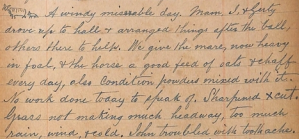 A windy miserable day. Mam. I. & Gerty
drove up to hall & arranged things after the ball,
others there to help. We give the mare, now heavy
in foal, & the horse a good feed of oats & chaff
every day, also Condition powders mixed with it.
No work done today to speak of. Sharpened & cut.
Grass not making much headway, too much
rain, wind, & cold. John troubled with toothache